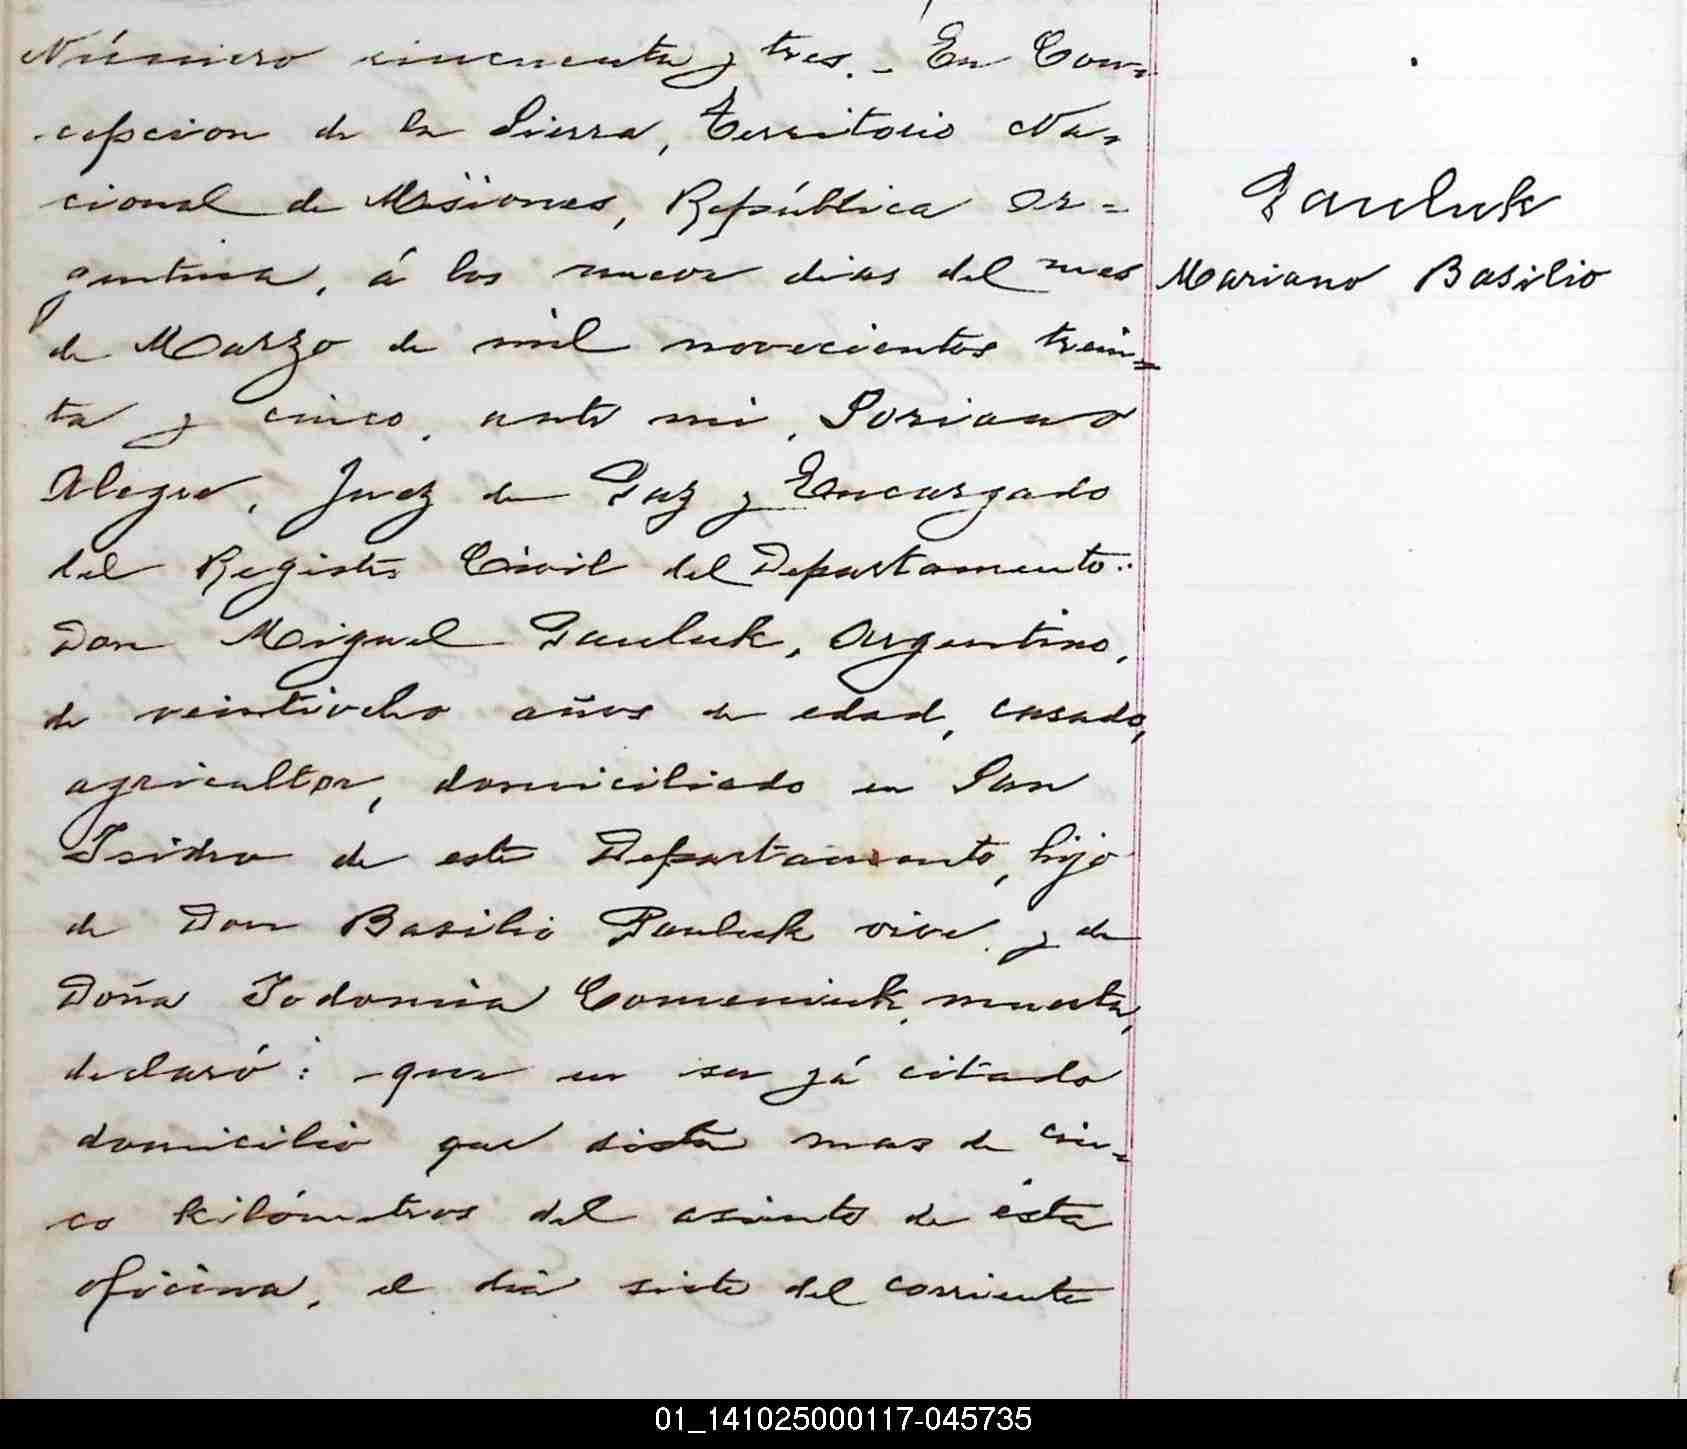 Número cincuenta y tres. - En Con-
cepcion de la Sierra, Territorio Na-
cional de Misiones, República Ar=
gentina, á los nueve dias del mes
de Marzo de mil novecientos trein=
ta y cinco, ante mi, Soriano
Alegre, Juez de Paz y Encargado
del Registro Civil del Departamento:
Don Miguel Pauluk, Argentino,
de veintiocho años de edad, casado,
agricultor, domiciliado en San
Isidro de este Departamento, hijo
de Don Basilio Pauluk vive y de
Doña Todomia Comeniuk, muerta,
declaró: -que en su yá citado
domicilio que dista mas de cin=
co kilómetros del asiento de ésta
oficina, el dia siete del corriente
Pauluk
Mariano Basilio
01_141025000117-045735